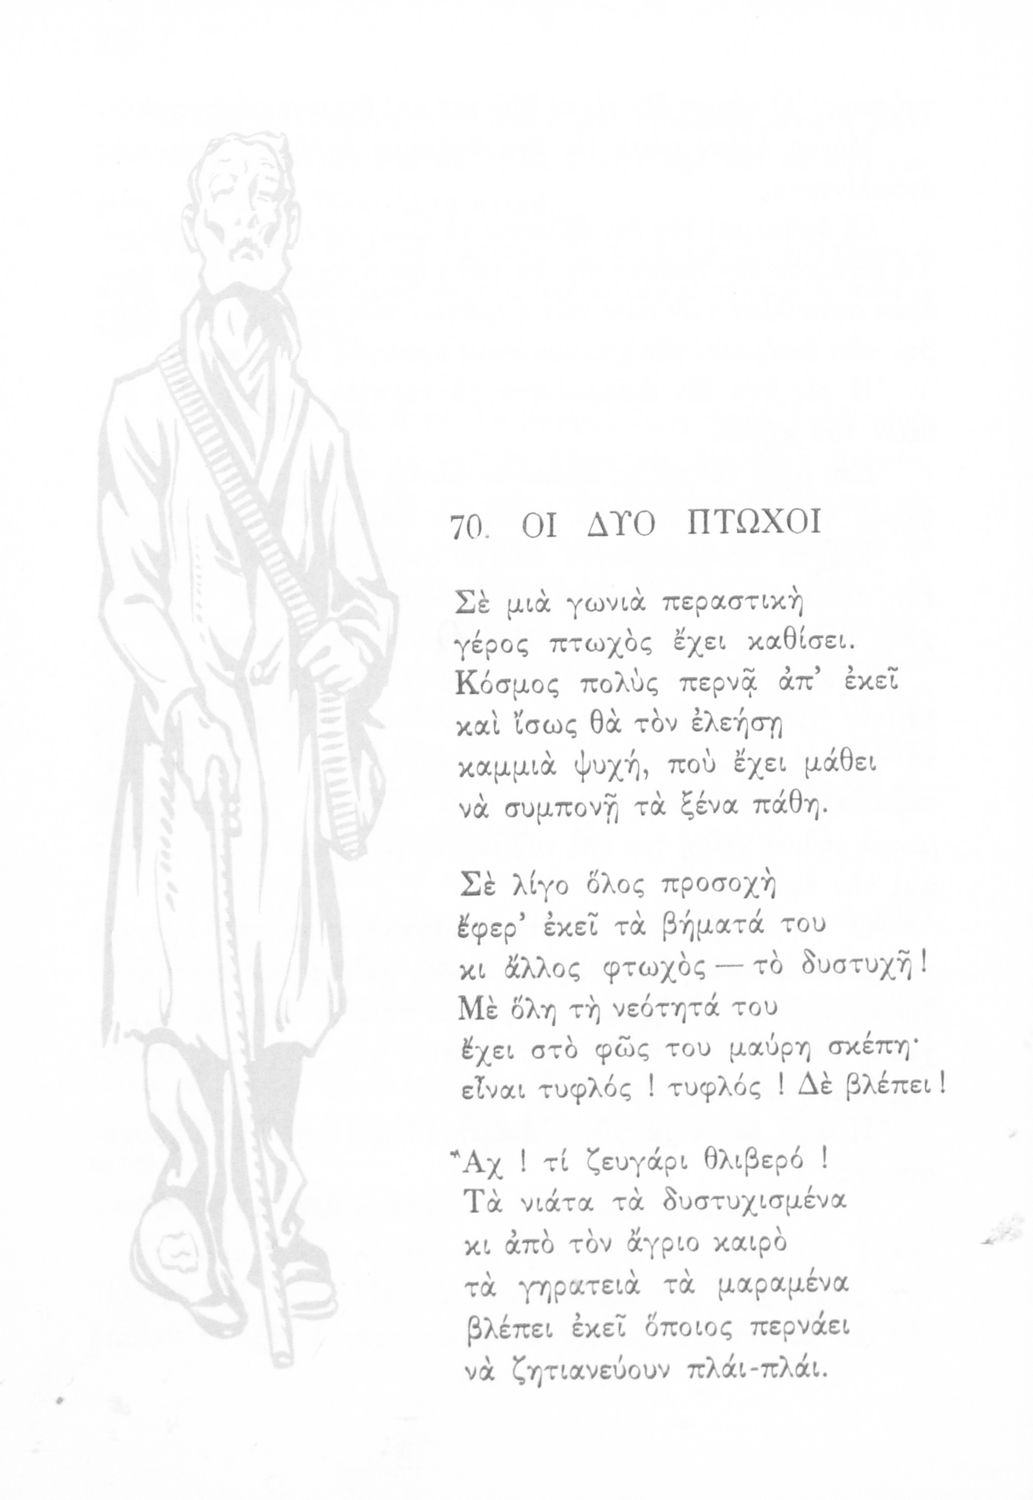 70. ΟΙ ΔΥΟ ΠΤΩΧΟΙ
Σὲ μιὰ γωνιὰ περαστικὴ
γέρος πτωχὸς ἔχει καθίσει.
Κόσμος πολὺς περνᾷ ἀπ’ ἐκεῖ
καὶ ἴσως θὰ τὸν ἐλεήσῃ
καμμιὰ ψυχή, ποὺ ἔχει μάθει
νὰ συμπονῇ τὰ ξένα πάθη.
Σὲ λίγο ὅλος προσοχὴ
ἔφερ’ ἐκεῖ τὰ βήματά του
κι ἄλλος φτωχὸς — τὸ δυστυχῆ !
Μὲ ὅλη τὴ νεότητά του
ἔχει στὸ φῶς του μαύρη σκέπη·
εἶναι τυφλός ! τυφλός ! Δὲ βλέπει !
Ἄχ ! τί ζευγάρι θλιβερό !
Τὰ νιάτα τὰ δυστυχισμένα
κι ἀπὸ τὸν ἄγριο καιρὸ
τὰ γηρατειὰ τὰ μαραμένα
βλέπει ἐκεῖ ὅποιος περνάει
νὰ ζητιανεύουν πλάι-πλάι.